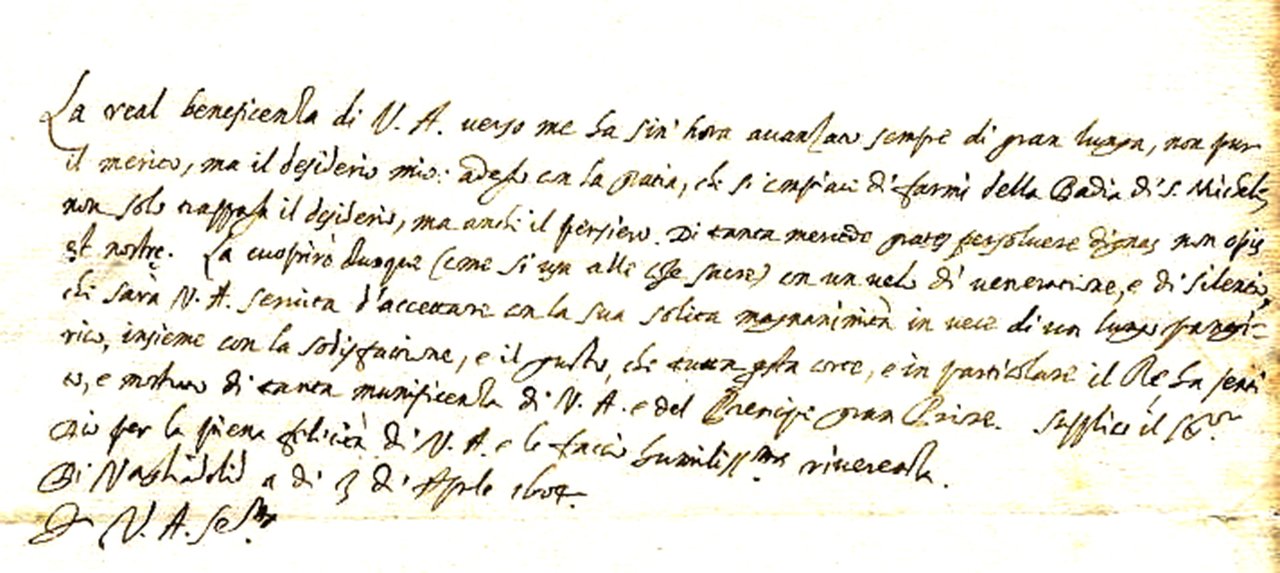 La real beneficenza di V. A. verso me ha sin' hora avanzato sempre di gran lunga, non pur
il merito, ma il desiderio mio: adesso con la gratia, che si compiace di farmi della Badia di S. Michele,
non solo trappassa il desiderio, ma anche il pensiero. Di tanta mercede grates persolvere dignas non opis
est nostrę. La cuoprirò dunque (come si usa alle cose sacre) con un velo di veneratione, e di silentio,
che sarà V. A. servita d'accettare con la sua solita magnanimità in vece di un lungo panegi-
rico, insieme con la sodisfatione, e il gusto, che tutta questa corte, e in particolare il Rè ha senti
to, e mostrato di tanta munificenza di V. A. e del Prencipe gran Priore. Supplico il Sig.r
Dio per la piena felicità di V. A. e le faccio humiliss.ma riverenza.
Di Vagliadolid a di 3 di Aprle 1604.
Di V. A. Ser.ma